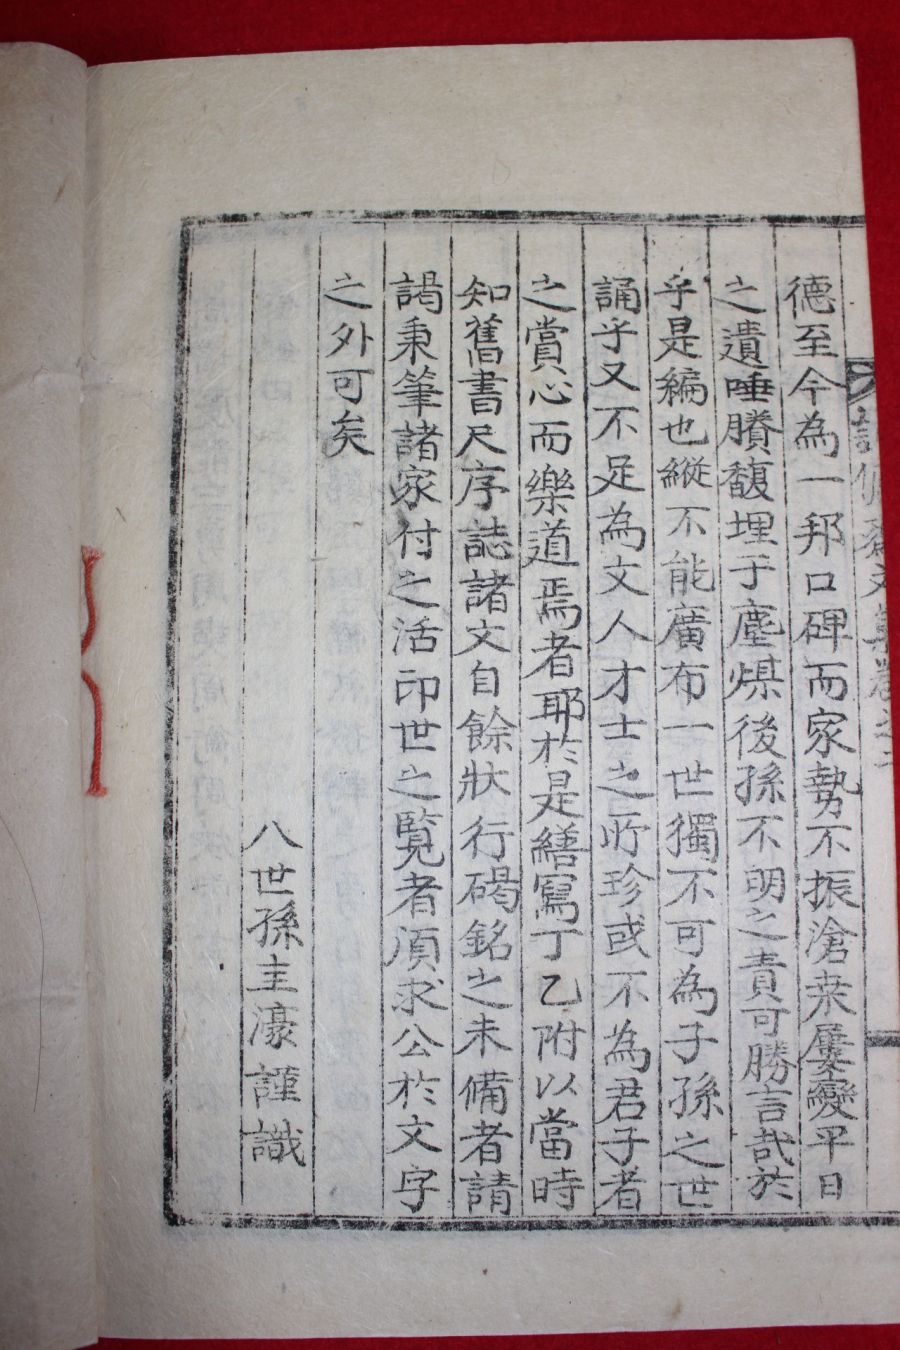 德至今為一邦口碑而家勢不振滄桒屢變平日
之遺唾賸馥埋于塵煤後孫不明之責可勝言哉於
乎是編也縱不能廣布一世獨不可為子孫之世
誦乎又不足為文人才士之所珍或不為君子者
之賞心而樂道焉者耶於是繕寫丁乙附以當時
知舊書尺序誌諸文自餘狀行碣銘之未備者請
謁秉筆諸家付之活印世之覽者須求公於文字
之外可矣
八世孫主濠謹識